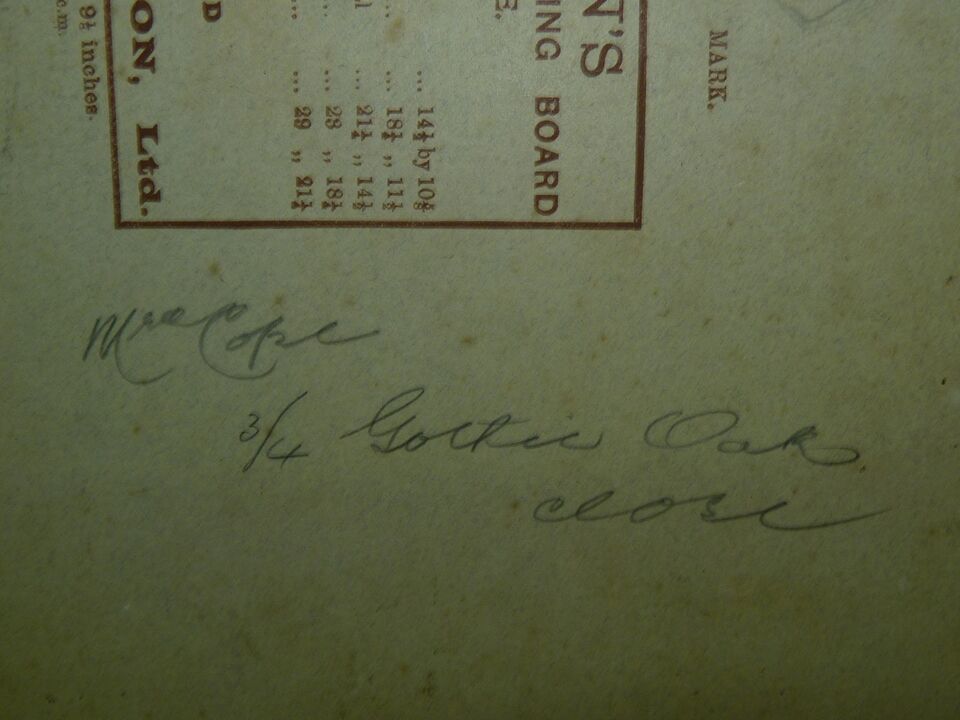 MARK.
N'S
ING BOARD
E.
... 14½ by 10⅝
... 18½ ,, 11½
... 21¼ ,, 14½
... 23 ,, 18¼
... 29 ,, 21¼
D
ON, Ltd.
9½ inches.
c.m.
Mrs Cope
3/4 Gothic Oak
close